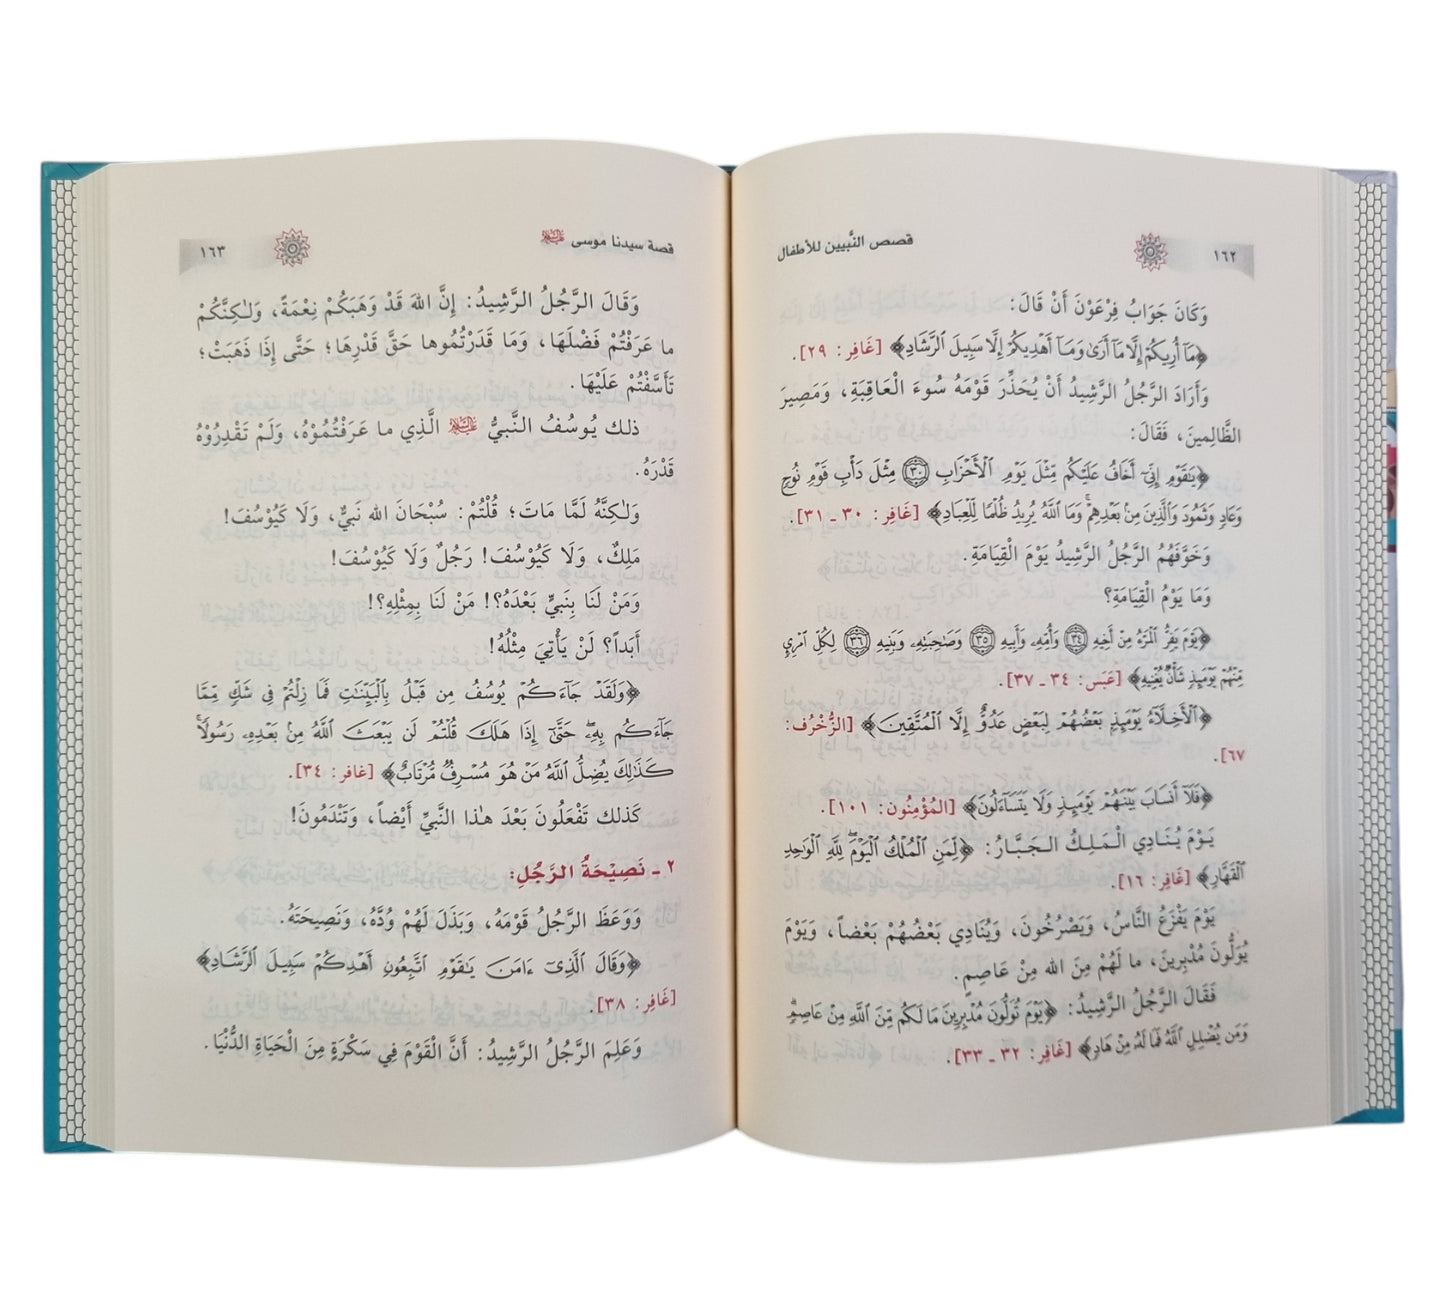 ١٦٢
قصص النَّبيين للأطفال
وَكَانَ جَوَابُ فِرْعَوْنَ أَنْ قَالَ:
﴿مَآ أُرِيكُمْ إِلَّا مَآ أَرَىٰ وَمَآ أَهْدِيكُمْ إِلَّا سَبِيلَ ٱلرَّشَادِ﴾ [غَافِر: ٢٩].
وَأَرَادَ الرَّجُلُ الرَّشِيدُ أَنْ يُحَذِّرَ قَوْمَهُ سُوءَ الْعَاقِبَةِ، وَمَصِيرَ
الظَّالِمِينَ، فَقَالَ:
﴿يَٰقَوْمِ إِنِّىٓ أَخَافُ عَلَيْكُم مِّثْلَ يَوْمِ ٱلْأَحْزَابِ ٣٠ مِثْلَ دَأْبِ قَوْمِ نُوحٍ
وَعَادٍ وَثَمُودَ وَٱلَّذِينَ مِنۢ بَعْدِهِمْ ۚ وَمَا ٱللَّهُ يُرِيدُ ظُلْمًا لِّلْعِبَادِ﴾ [غَافِر: ٣٠ ـ ٣١].
وَخَوَّفَهُمُ الرَّجُلُ الرَّشِيدُ يَوْمَ الْقِيَامَةِ.
وَمَا يَوْمُ الْقِيَامَةِ؟
﴿يَوْمَ يَفِرُّ ٱلْمَرْءُ مِنْ أَخِيهِ ٣٤ وَأُمِّهِۦ وَأَبِيهِ ٣٥ وَصَٰحِبَتِهِۦ وَبَنِيهِ ٣٦ لِكُلِّ ٱمْرِئٍ
مِّنْهُمْ يَوْمَئِذٍ شَأْنٌ يُغْنِيهِ﴾ [عَبَس: ٣٤ ـ ٣٧].
﴿ٱلْأَخِلَّآءُ يَوْمَئِذٍۭ بَعْضُهُمْ لِبَعْضٍ عَدُوٌّ إِلَّا ٱلْمُتَّقِينَ﴾ [الزُّخْرُف:
٦٧].
﴿فَلَآ أَنسَابَ بَيْنَهُمْ يَوْمَئِذٍ وَلَا يَتَسَآءَلُونَ﴾ [المُؤْمِنُون: ١٠١].
يَوْمَ يُنَادِي الْمَلِكُ الجَبَّارُ: ﴿لِّمَنِ ٱلْمُلْكُ ٱلْيَوْمَ ۖ لِلَّهِ ٱلْوَٰحِدِ
ٱلْقَهَّارِ﴾ [غَافِر: ١٦].
يَوْمَ يَفْزَعُ النَّاسُ، وَيَصْرُخُونَ، وَيُنَادِي بَعْضُهُمْ بَعْضاً، وَيَوْمَ
يُوَلُّونَ مُدْبِرِينَ، ما لَهُمْ مِنَ الله مِنْ عَاصِمٍ.
فَقَالَ الرَّجُلُ الرَّشِيدُ: ﴿يَوْمَ تُوَلُّونَ مُدْبِرِينَ مَا لَكُم مِّنَ ٱللَّهِ مِنْ عَاصِمٍ ۗ
وَمَن يُضْلِلِ ٱللَّهُ فَمَا لَهُۥ مِنْ هَادٍ﴾ [غَافِر: ٣٢ ـ ٣٣].
قصة سيدنا موسى عليه السلام
١٦٣
وَقَالَ الرَّجُلُ الرَّشِيدُ: إِنَّ اللهَ قَدْ وَهَبَكُمْ نِعْمَةً، وَلٰكِنَّكُمْ
ما عَرَفْتُمْ فَضْلَهَا، وَمَا قَدَرْتُمُوها حَقَّ قَدْرِهَا؛ حَتَّى إِذَا ذَهَبَتْ؛
تَأَسَّفْتُمْ عَلَيْهَا.
ذلك يُوسُفُ النَّبيُّ عليه السلام الَّذِي ما عَرَفْتُمُوْهُ، وَلَمْ تَقْدِرُوْهُ
قَدْرَهُ.
وَلٰكِنَّهُ لَمَّا مَاتَ؛ قُلْتُمْ: سُبْحَانَ الله نَبيٌّ، وَلَا كَيُوْسُفَ!
مَلِكٌ، وَلَا كَيُوْسُفَ! رَجُلٌ وَلَا كَيُوْسُفَ!
وَمَنْ لَنَا بِنَبيٍّ بَعْدَهُ؟! مَنْ لَنَا بِمِثْلِهِ؟!
أَبَداً؟ لَنْ يَأْتِيَ مِثْلُهُ!
﴿وَلَقَدْ جَآءَكُمْ يُوسُفُ مِن قَبْلُ بِٱلْبَيِّنَٰتِ فَمَا زِلْتُمْ فِى شَكٍّ مِّمَّا
جَآءَكُم بِهِۦ ۖ حَتَّىٰٓ إِذَا هَلَكَ قُلْتُمْ لَن يَبْعَثَ ٱللَّهُ مِنۢ بَعْدِهِۦ رَسُولًا ۚ
كَذَٰلِكَ يُضِلُّ ٱللَّهُ مَنْ هُوَ مُسْرِفٌ مُّرْتَابٌ﴾ [غافر: ٣٤].
كَذلك تَفْعَلُونَ بَعْدَ هٰذا النَّبيِّ أَيْضاً، وَتَنْدَمُونَ!
٢ ـ نَصِيْحَةُ الرَّجُلِ:
وَوَعَظَ الرَّجُلُ قَوْمَهُ، وَبَذَلَ لَهُمْ وُدَّهُ، وَنَصِيحَتَهُ.
﴿وَقَالَ ٱلَّذِىٓ ءَامَنَ يَٰقَوْمِ ٱتَّبِعُونِ أَهْدِكُمْ سَبِيلَ ٱلرَّشَادِ﴾
[غَافِر: ٣٨].
وَعَلِمَ الرَّجُلُ الرَّشِيدُ: أَنَّ الْقَوْمَ فِي سَكْرَةٍ مِنَ الْحَيَاةِ الدُّنْيَا.